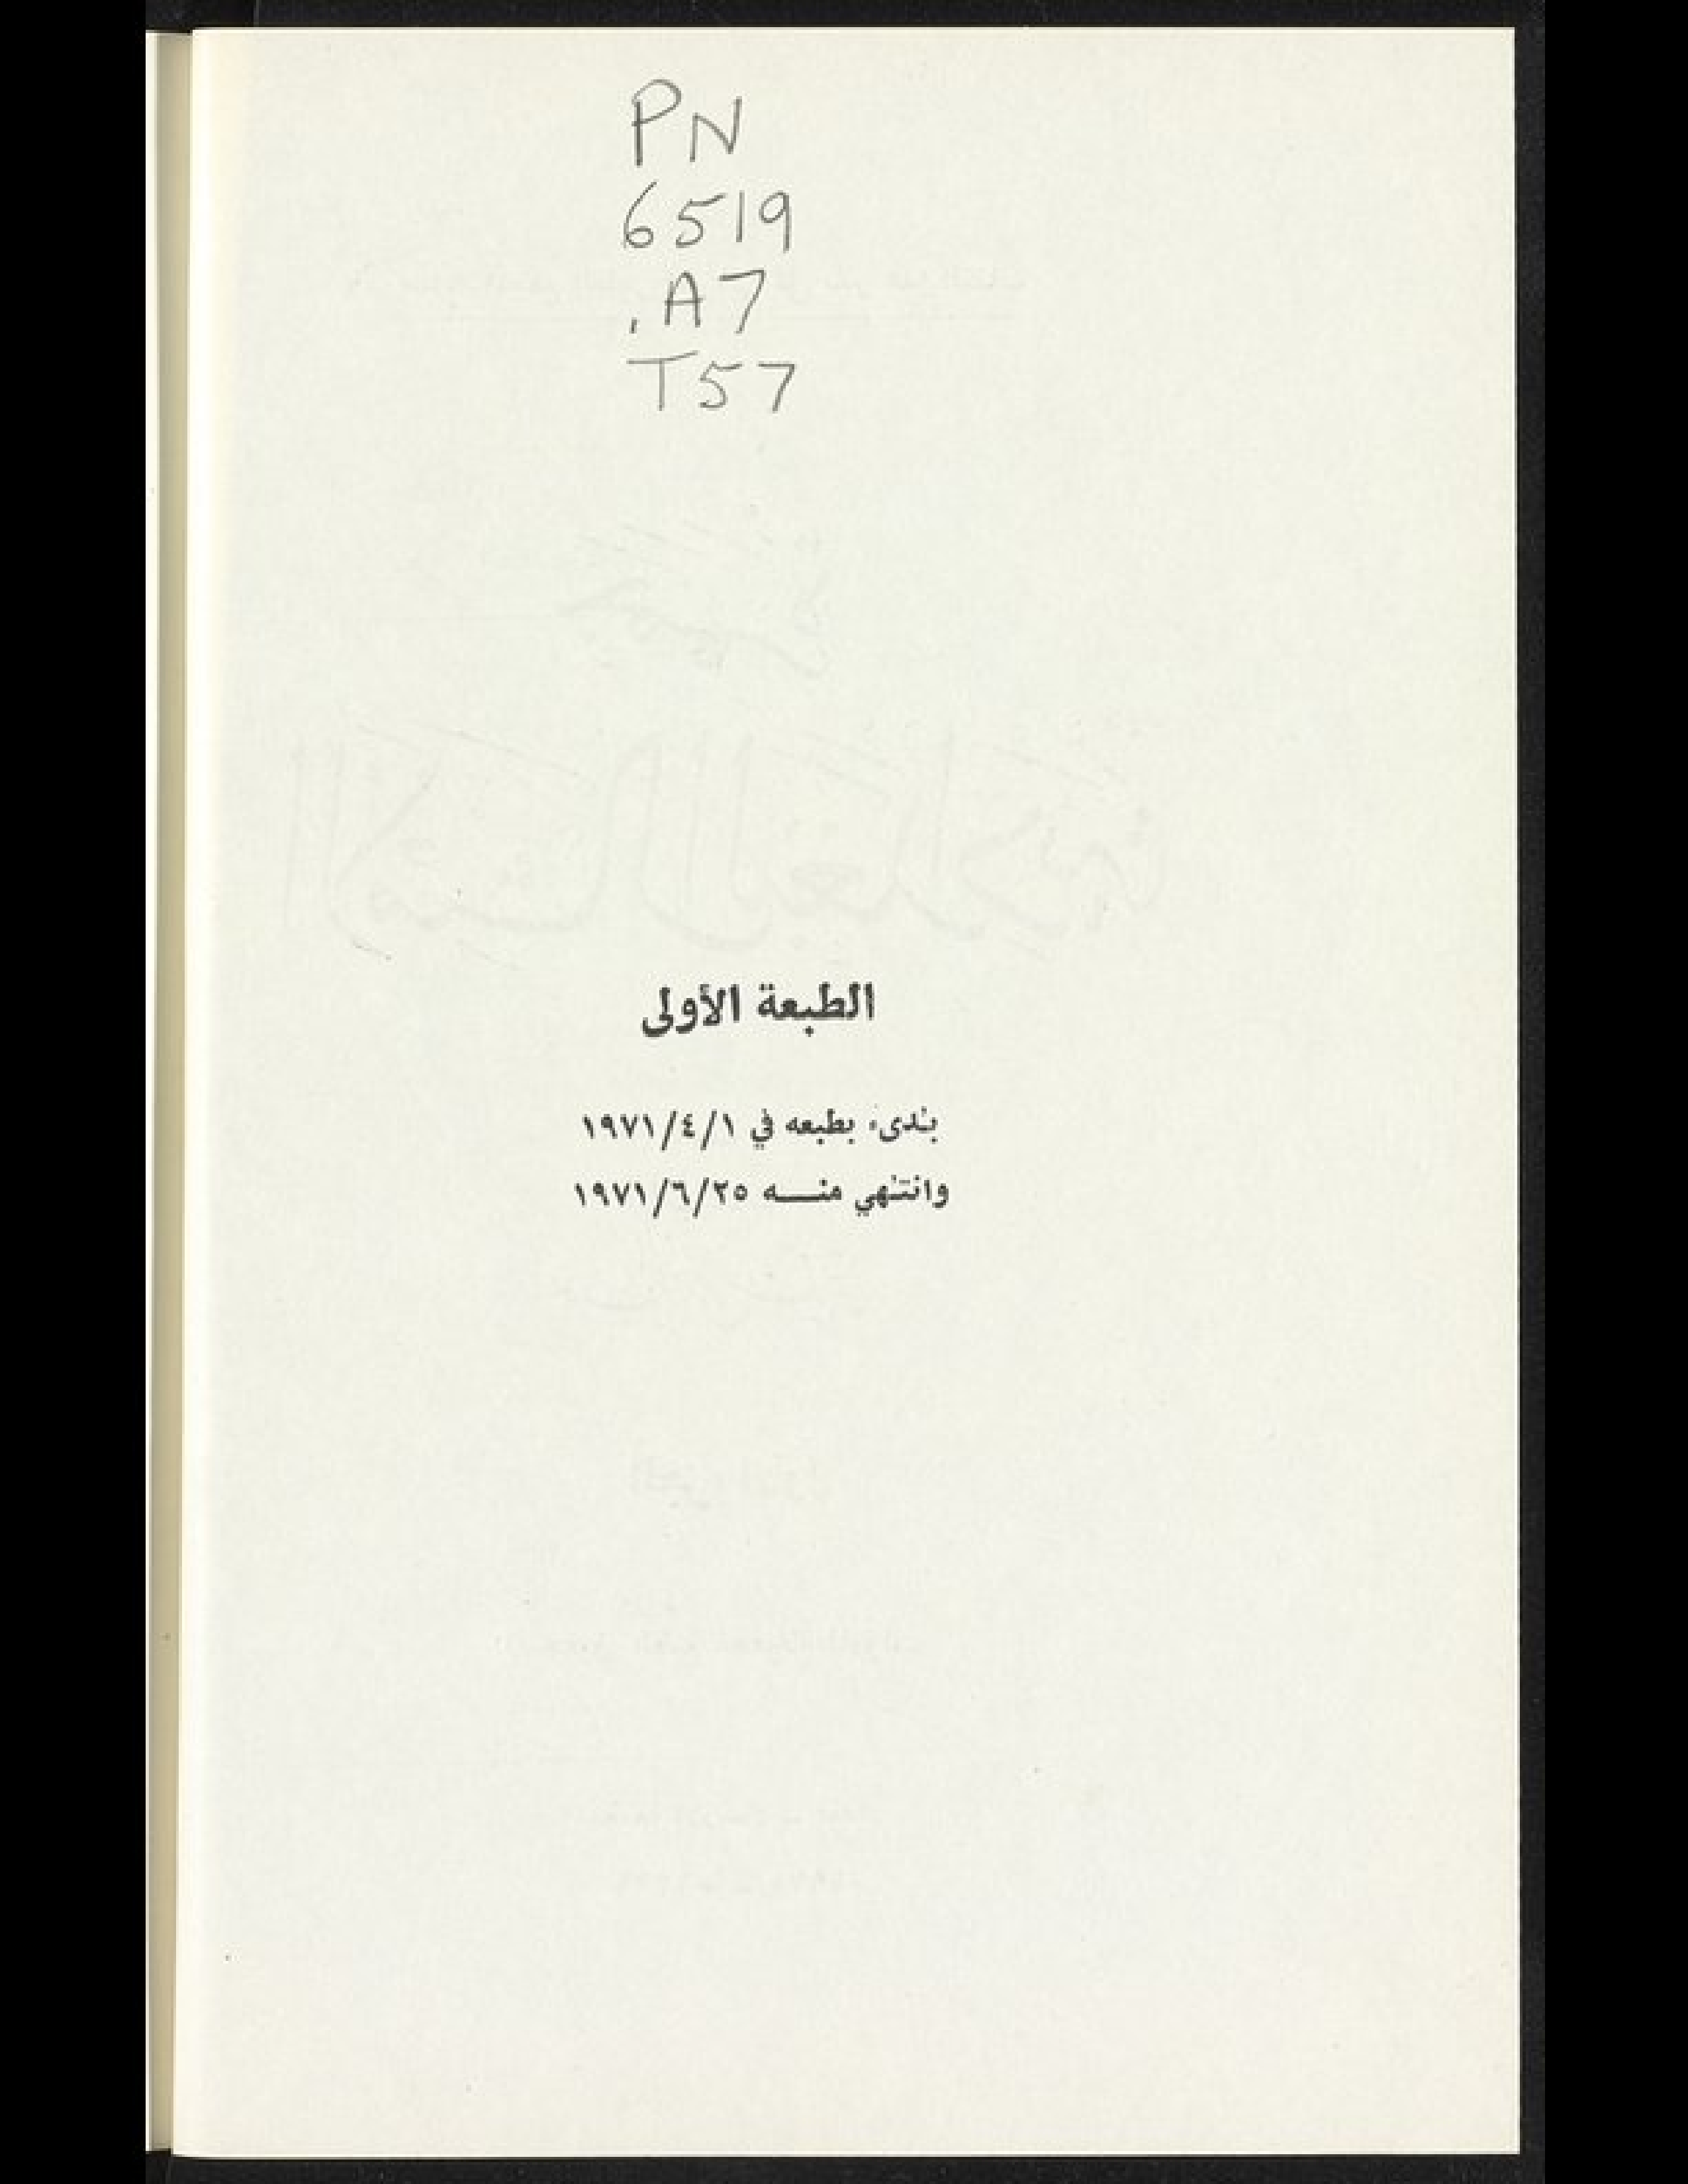 PN
6519
.A7
T57
الطبعة الأولى
بدىء بطبعه في ١٩٧١/٤/١
وانتهي منـــه ١٩٧١/٦/٢٥